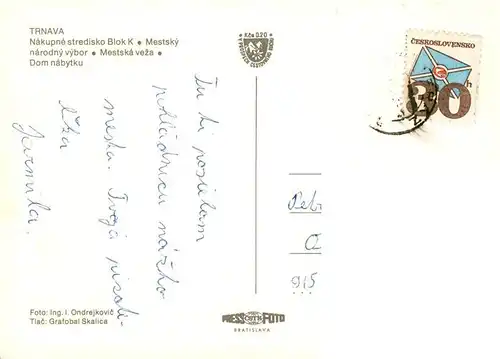 TRNAVA
Nákupné stredisko Blok K • Mestský
národný výbor • Mestská veža •
Dom nábytku
Kčs 0,20
ČESKOSLOVENSKO
h
Tu ti posielam
pohľadnicu nášho
mesta. Tvoja
Jarmila.
Petr
915
Foto: Ing. I. Ondrejkovič
Tlač: Grafobal Skalica
PRESSČSTKFOTO
BRATISLAVA